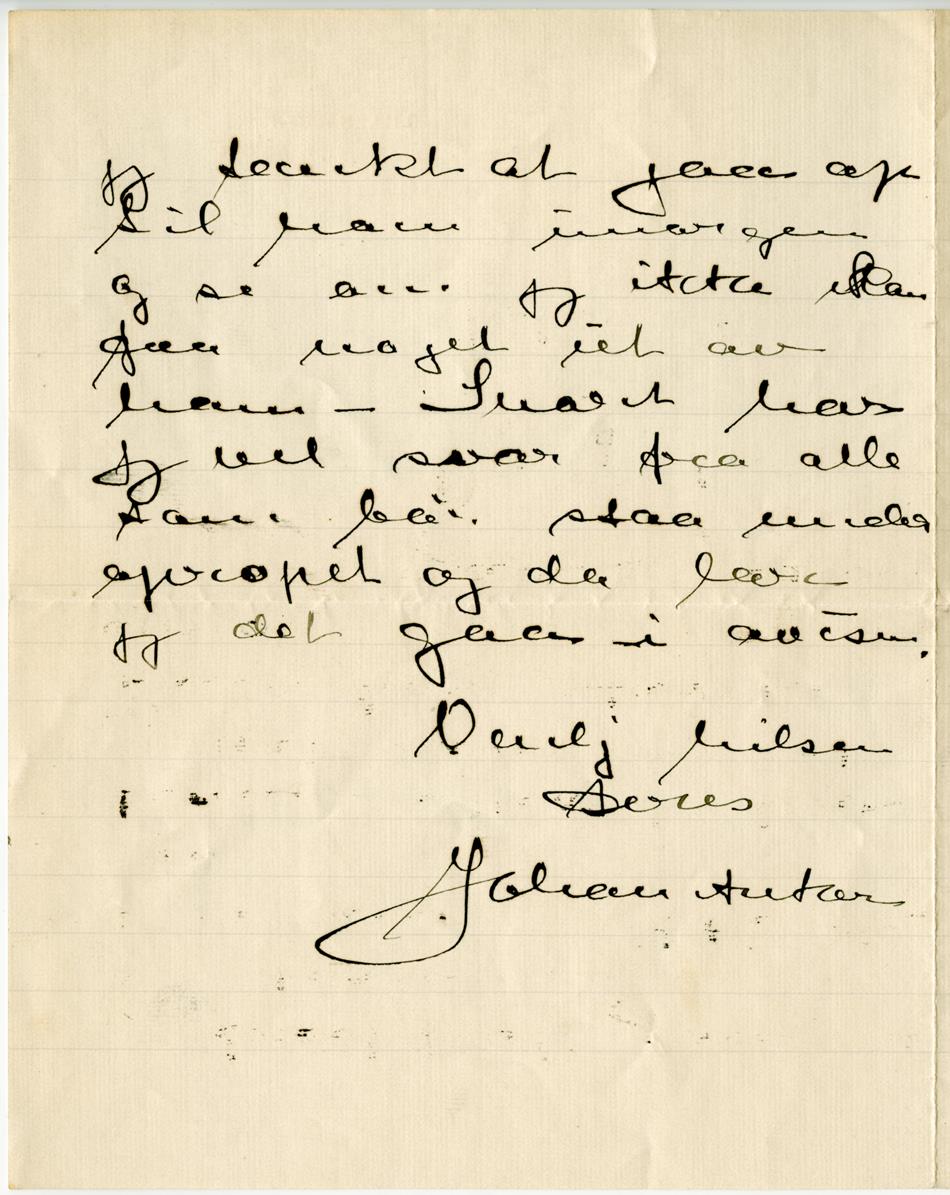 jeg tænkt at gaa op
til ham imorgen
og se om jeg ikke kan
faa noget ut av
ham – Snart har
jeg vel svar fra alle
som bør staa under
opropet og da lar
jeg det gaa i avisen.
Venlig hilsen
Deres
Johan Anker